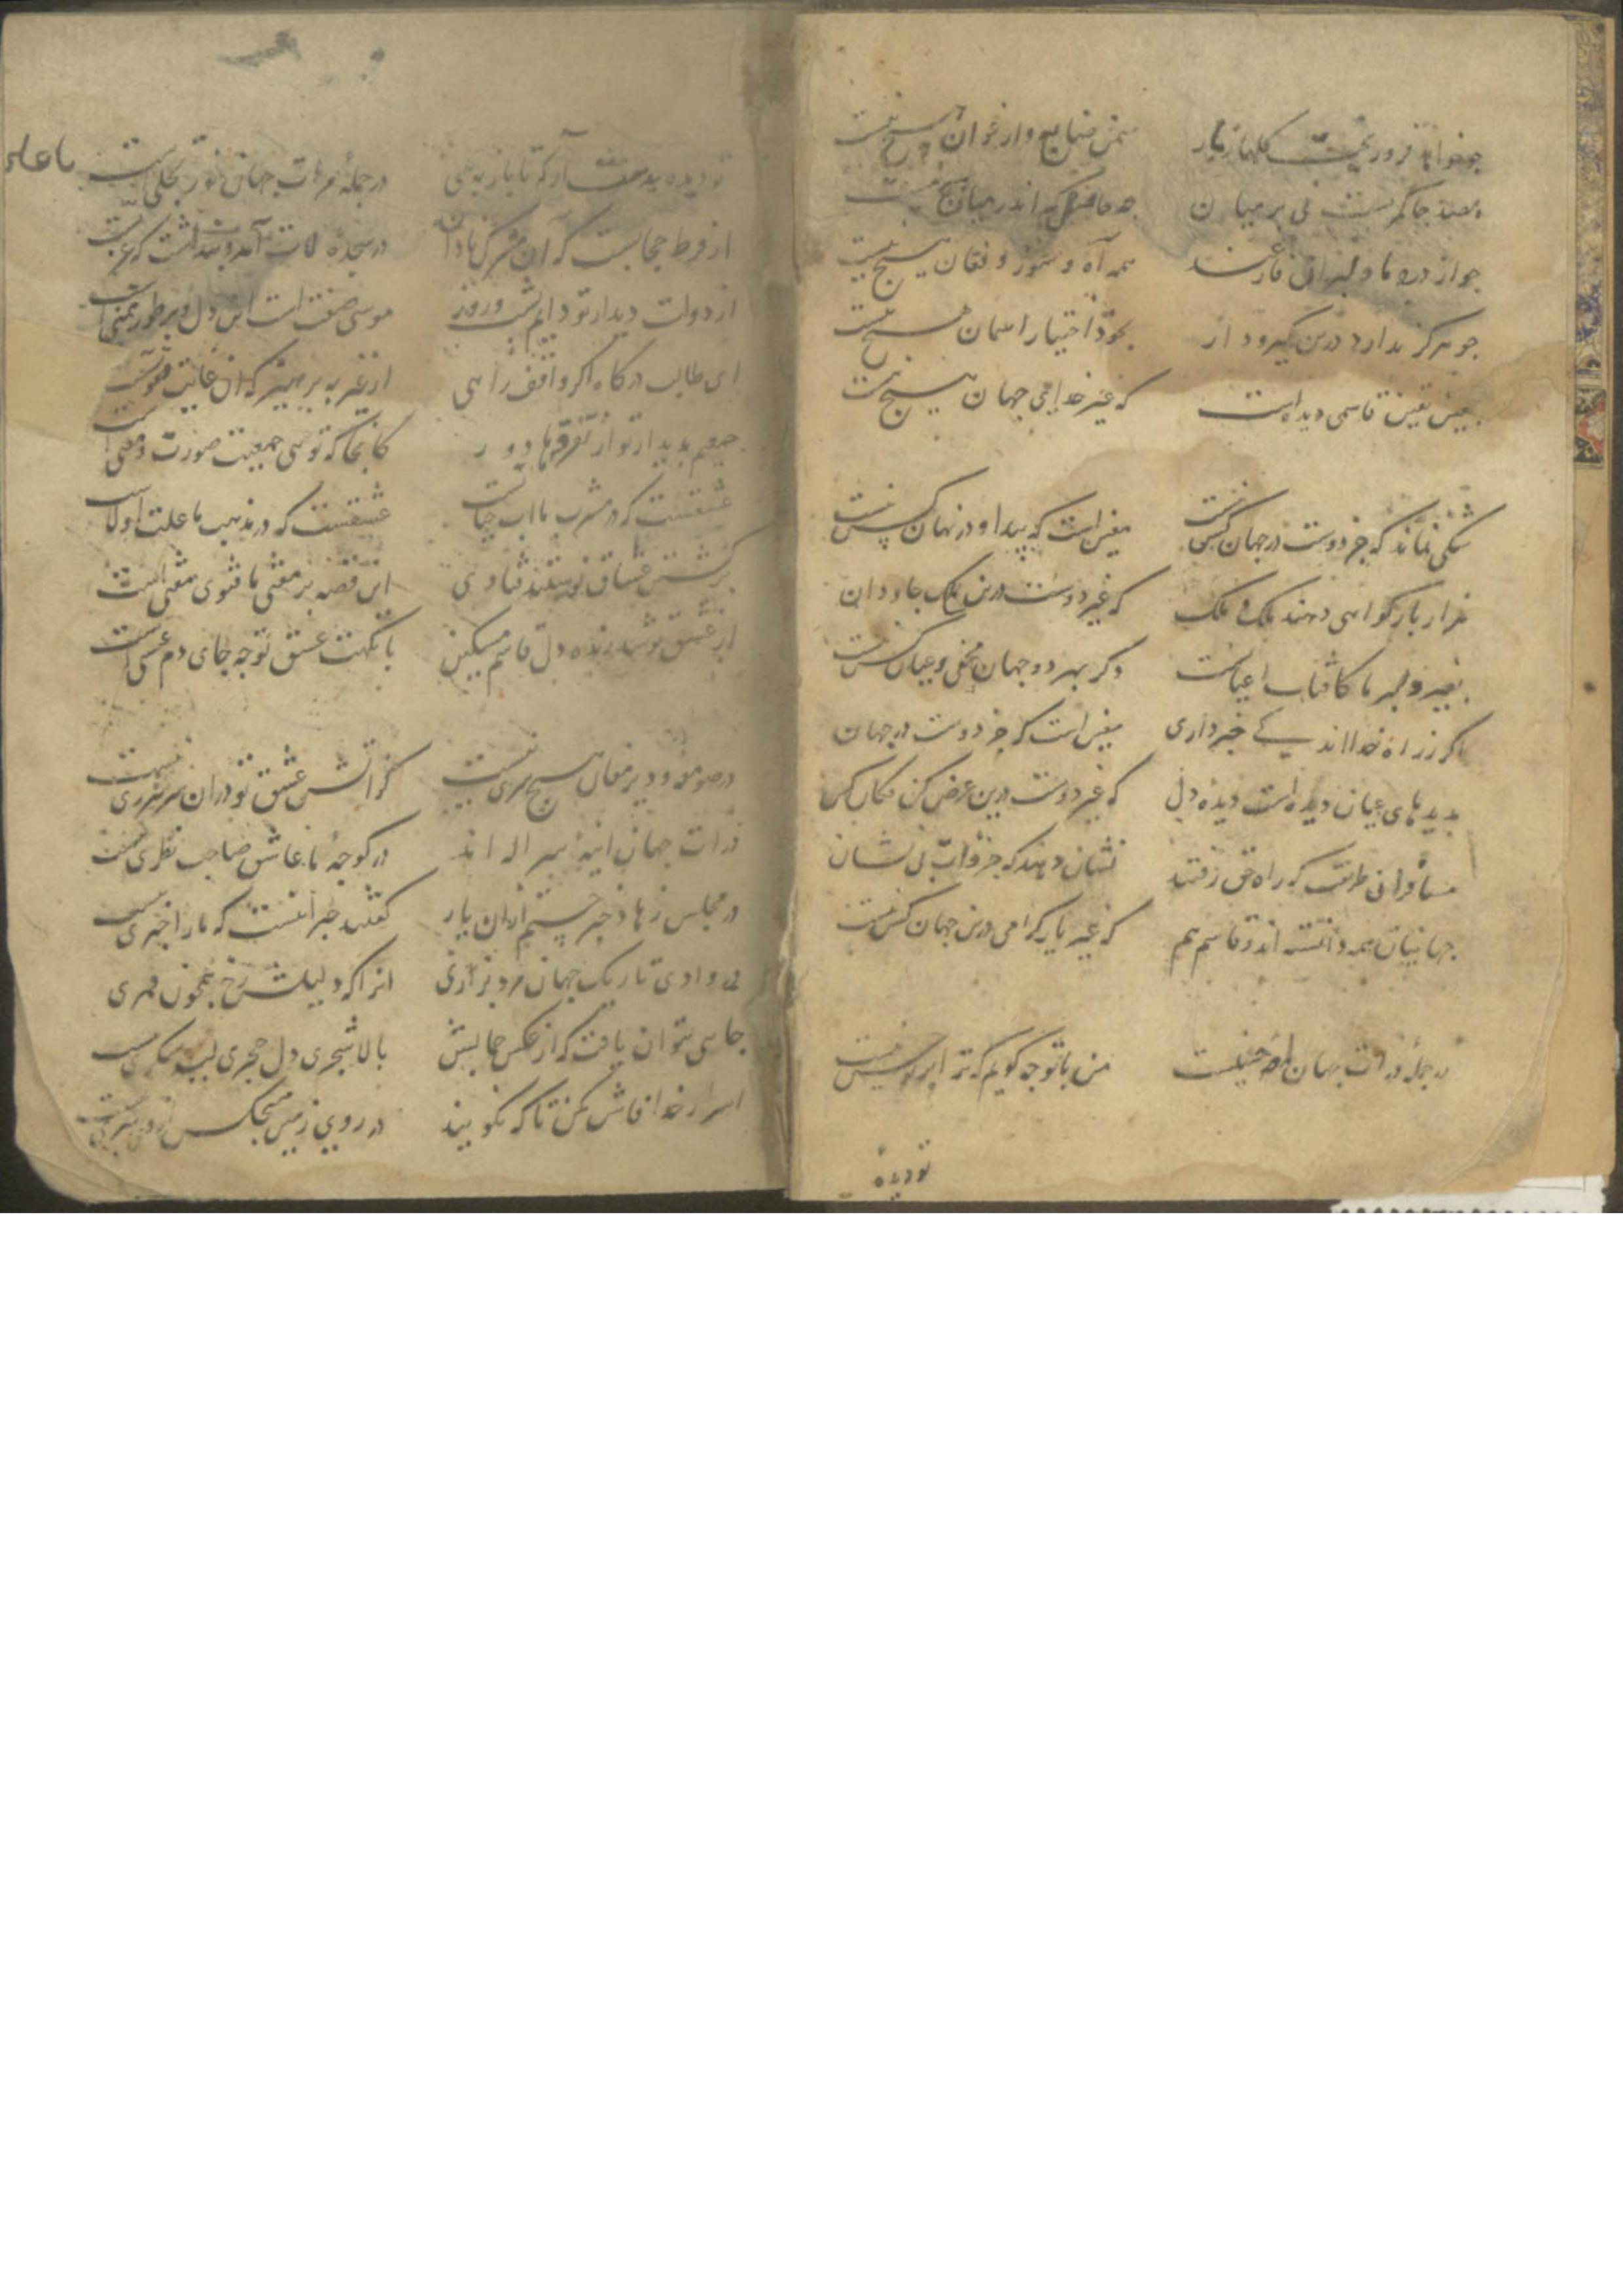 چو خواهد فرو ریخت گلها ز بار
سمن ضایع و ارغوان هیچ نیست
همه آه و سوز و فغان هیچ نیست
چو هرگز ندارد درین گیرودار
بخود اختیار آسمان هیچ نیست
بعین یقین قاسمی دیده است
که غیر خدا فی جهان هیچ نیست
شکی نماند که جز دوست در جهان کس نیست
یقین است که پیدا و در نهان کس نیست
هزار بار گواهی دهند ملک و ملک
که غیر دوست درین ملک جاودان
بغیر دلبر ما کافتاب اعیانست
دگر بهر دو جهان مخفی و عیان کس نیست
اگر ز راه خدا اندکی خبر داری
یقین است که جز دوست در جهان
بدیدهای عیان دیده است دیده دل
که غیر دوست درین عرض کن فکان کس
مسافران طریقت که راه حق رفتند
نشان دهند که جز ذات بی نشان
جهانیان همه دانسته اند و قاسم هم
که غیر یار گرامی درین جهان کس نیست
در جمله ذرات جهان
من با تو چه گویم که ترا
تو دیده
تو دیده بدست آر که تا باز به بینی
در جمله ذرات جهان نور تجلی است
از فرط حجابست که آن مشرک نادان
در سجده لات آمد و پنداشت که عزیست
از دولت دیدار تو دایم شب و روز
موسی صفت است این دل و بر طور تمنی است
ای طالب درگاه اگر واقف راهی
از غیر بپرهیز که آن غایت تقویست
جمعیم بدیدار تو از تفرقها دور
کانجا که تویی جمعیت صورت و معنی است
عشقست که در مشرب ما آب حیاتست
عشقست که در مذهب ما علت اولاست
بر کشتن عشاق نوشتند فتاوی
این قصه بر مفتی ما فتوی مفتی است
از عشق تو شد زنده دل قاسم مسکین
با نکهت عشق تو چه جای دم عیسی است
در صومعه و دیر مغان هیچ سری نیست
کز آتش عشق تو در آن سر شرری نیست
ذرات جهان آینه سر اله اند
در کوچه ما عاشق صاحب نظری نیست
در مجلس زهاد خبر جستم از آن یار
گفتند خبر آنست که ما را خبری نیست
در وادی تاریک جهان مرد بزاری
آنرا که ز لیلی رخ همچون قمری
جایی نتوان یافت که از عکس جمالش
بالا شجری دل حجری لب شکری نیست
اسرار خدا فاش مکن تا که نگویند
در روی زمین هیچکس از وی بتری نیست